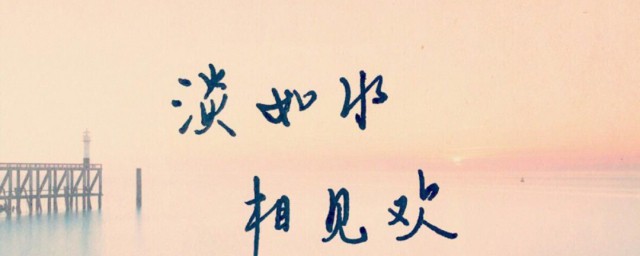 淡如水
相见欢